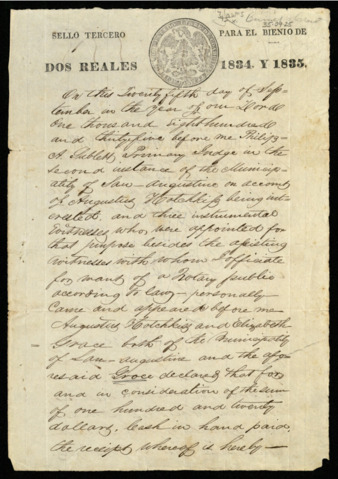 SELLO TERCERO
PARA EL BIENIO DE
DOS REALES
1834. Y 1835.
On this Twenty fifth day of Sep-
tember in the year of our Lord
one thousand eight hundred
and thirty five before me Philip
A Sublett Primary Judge in the
second instance of the Municip-
ality of San-augustine on account
of Augustus Hotchkiss being int-
erested, and three instrumental
witnesses, who, were appointed for
that purpose besides the assisting
witnesses with whom I officiate
for, want of a Notary public
according to law - personally
Came and appeared before me
Augustus Hotchkiss and Elizabeth
Grace both of the Municipality
of San-augustine and the afo-
resaid Groce declared that for
and in consideration of the sum
of one hundred and twenty
dollars, Cash in hand paid,
the receipt whereof is hereby-